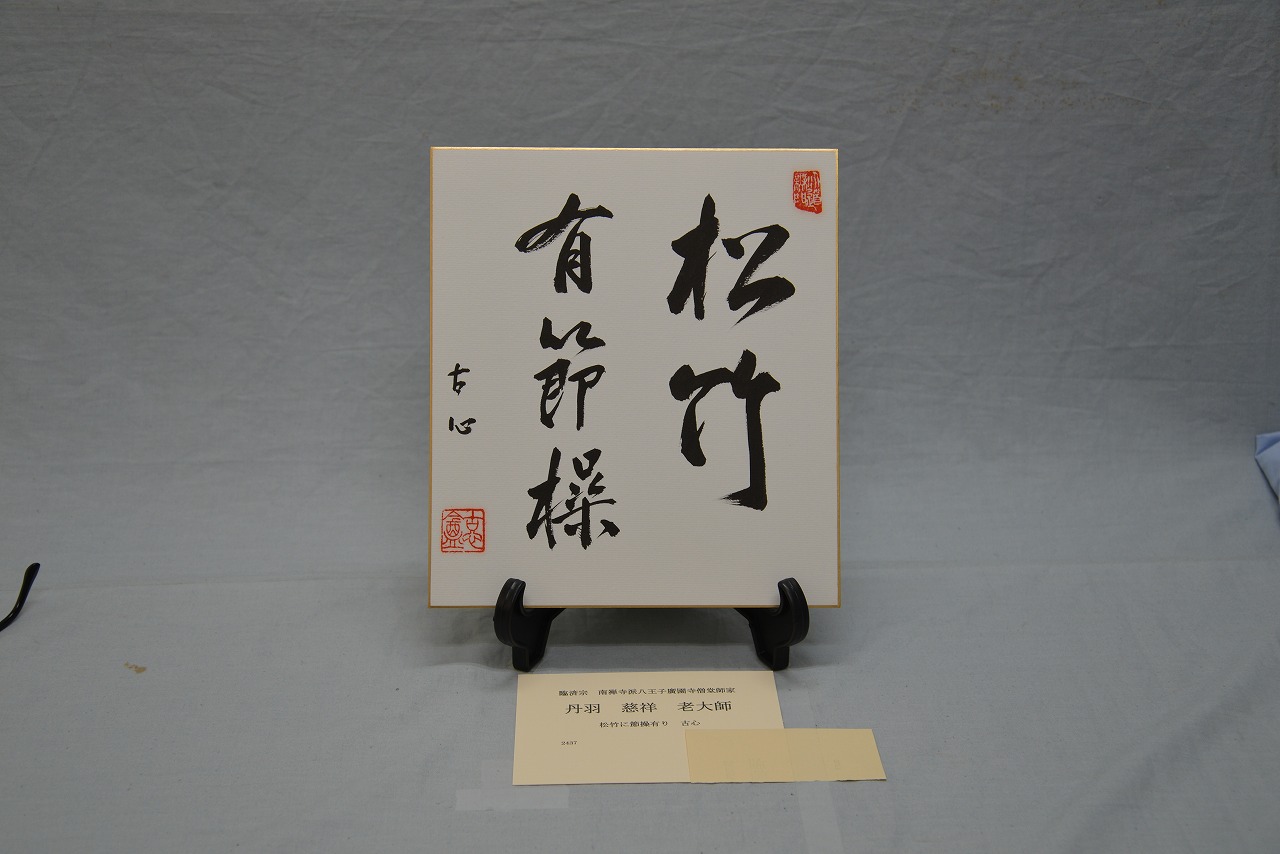 松竹
有節操
古心
臨済宗　南禅寺派八王子廣園寺僧堂師家
丹羽　慈祥　老大師
松竹に節操有り　古心
2437